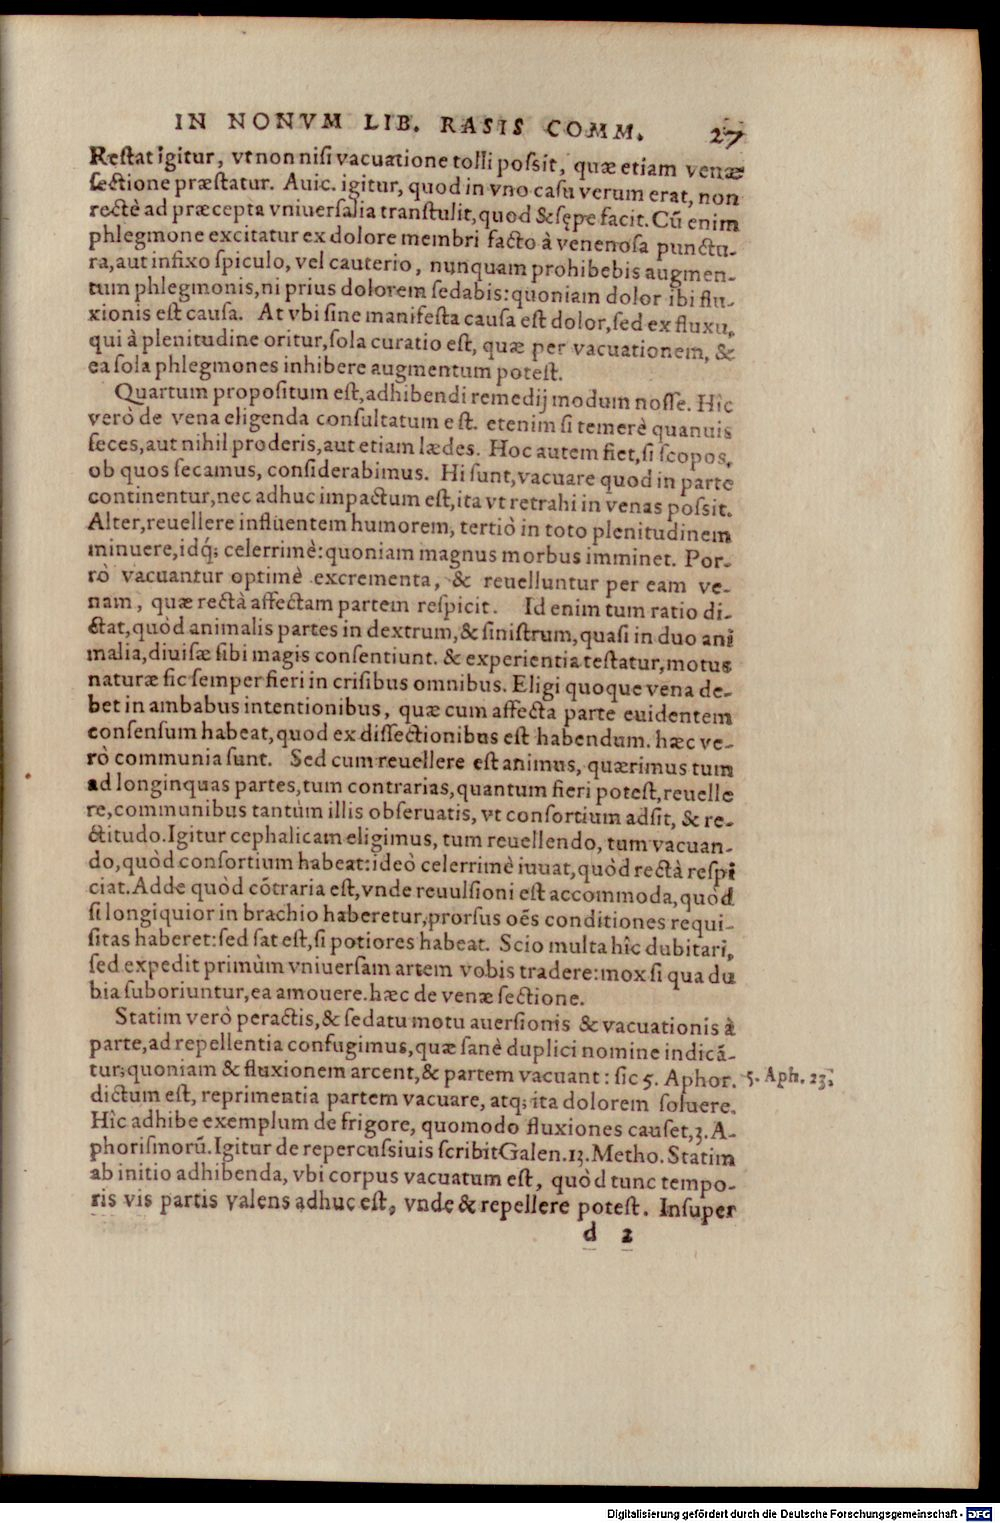 IN NONVM LIB. RASIS COMM. 27
Restat igitur, vt non nisi vacuatione tolli possit, quæ etiam venæ
sectione præstatur. Auic. igitur, quod in vno casu verum erat, non
rectè ad præcepta vniuersalia transtulit, quod & sępe facit. Cū enim
phlegmone excitatur ex dolore membri facto à venenosa punctu-
ra, aut infixo spiculo, vel cauterio, nunquam prohibebis augmen-
tum phlegmonis, ni prius dolorem sedabis: quoniam dolor ibi flu-
xionis est causa. At vbi sine manifesta causa est dolor, sed ex fluxu,
qui à plenitudine oritur, sola curatio est, quæ per vacuationem, &
ea sola phlegmones inhibere augmentum potest.
Quartum propositum est, adhibendi remedij modum nosse. Hîc
verò de vena eligenda consultatum est. etenim si temerè quanuis
seces, aut nihil proderis, aut etiam lædes. Hoc autem fiet, si scopos,
ob quos secamus, considerabimus. Hi sunt, vacuare quod in parte
continentur, nec adhuc impactum est, ita vt retrahi in venas possit.
Alter, reuellere influentem humorem, tertiò in toto plenitudinem
minuere, idq́; celerrimè: quoniam magnus morbus imminet. Por-
rò vacuantur optimè excrementa, & reuelluntur per eam ve-
nam, quæ rectà affectam partem respicit. Id enim tum ratio di-
ctat, quòd animalis partes in dextrum, & sinistrum, quasi in duo ani
malia, diuisæ sibi magis consentiunt. & experientia testatur, motus
naturæ sic semper fieri in crisibus omnibus. Eligi quoque vena de-
bet in ambabus intentionibus, quæ cum affecta parte euidentem
consensum habeat, quod ex dissectionibus est habendum. hæc ve-
rò communia sunt. Sed cum reuellere est animus, quærimus tum
ad longinquas partes, tum contrarias, quantum fieri potest, reuelle
re, communibus tantùm illis obseruatis, vt consortium adsit, & re-
ctitudo. Igitur cephalicam eligimus, tum reuellendo, tum vacuan-
do, quòd consortium habeat: ideò celerrimè iuuat, quòd rectà respi
ciat. Adde quòd cōtraria est, vnde reuulsioni est accommoda, quòd
si longiquior in brachio haberetur, prorsus oēs conditiones requi-
sitas haberet: sed sat est, si potiores habeat. Scio multa hîc dubitari,
sed expedit primùm vniuersam artem vobis tradere: mox si qua du
bia suboriuntur, ea amouere. hæc de venæ sectione.
Statim verò peractis, & sedatu motu auersionis & vacuationis à
parte, ad repellentia confugimus, quæ sanè duplici nomine indicā-
tur: quoniam & fluxionem arcent, & partem vacuant: sic 5. Aphor. 5. Aph. 23.
dictum est, reprimentia partem vacuare, atq; ita dolorem soluere.
Hîc adhibe exemplum de frigore, quomodo fluxiones causet, 3. A-
phorismorū. Igitur de repercussiuis scribit Galen. 13. Metho. Statim
ab initio adhibenda, vbi corpus vacuatum est, quòd tunc tempo-
ris vis partis valens adhuc est, vnde & repellere potest. Insuper
d 2
Digitalisierung gefördert durch die Deutsche Forschungsgemeinschaft - DFG